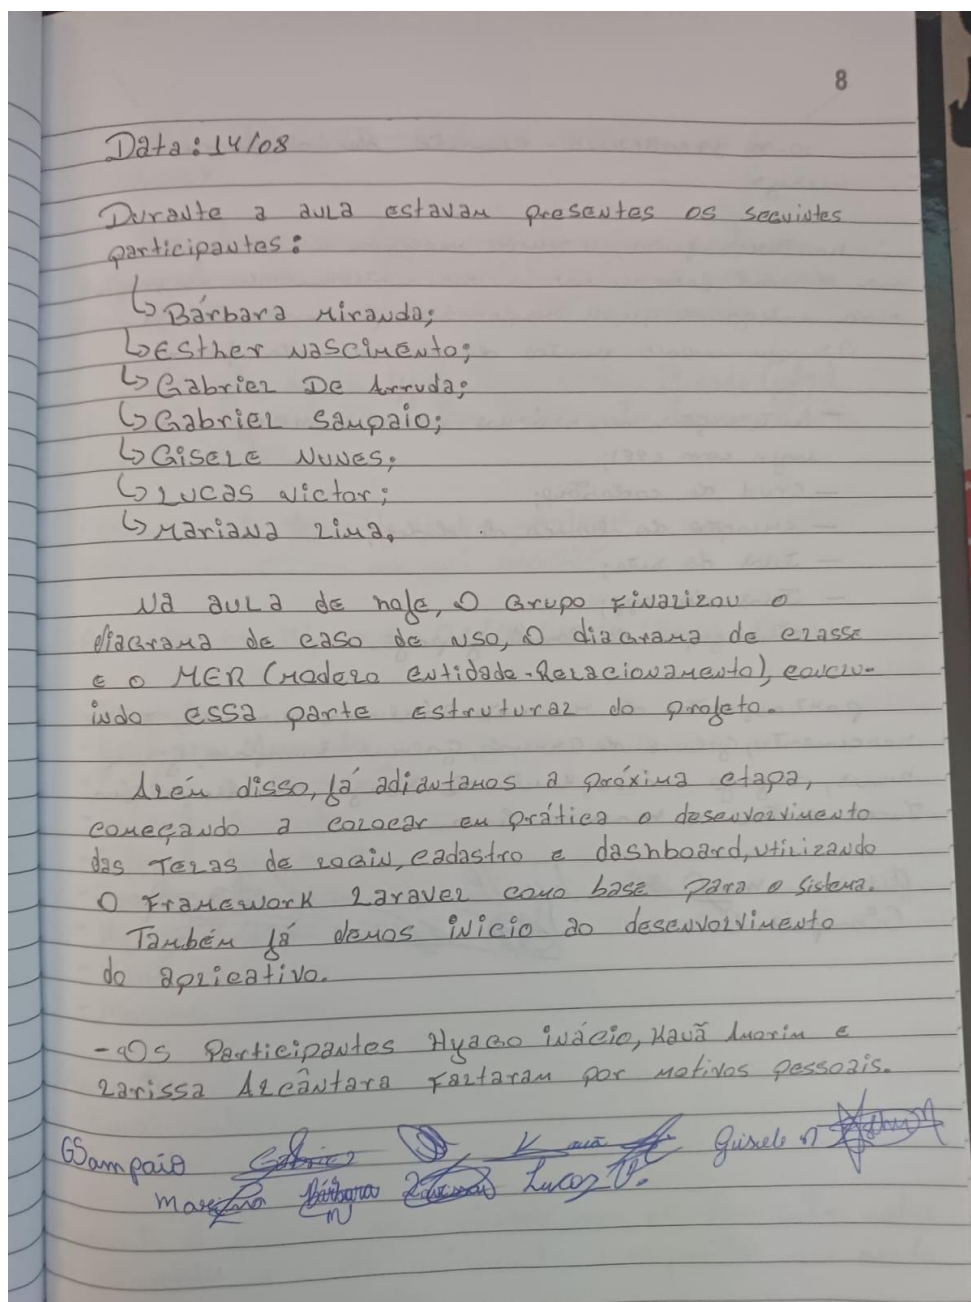 8
Data: 14/08
Durante a aula estavam presentes os seguintes
participantes:
↳ Bárbara Miranda;
↳ Esther Nascimento;
↳ Gabriel De Arruda;
↳ Gabriel Sampaio;
↳ Gisele Nunes;
↳ Lucas Victor;
↳ Mariana Lima.
Na aula de hoje, o Grupo Finalizou o
diagrama de caso de uso, o diagrama de classe
e o MER (Modelo Entidade-Relacionamento), conclu-
indo essa parte estrutural do projeto.
Além disso, já adiantamos a próxima etapa,
começando a colocar em prática o desenvolvimento
das Telas de login, cadastro e dashboard, utilizando
o Framework Laravel como base para o sistema.
Também já demos início ao desenvolvimento
do aplicativo.
- Os Participantes Hyago Inácio, Kauã Amorim e
Larissa Alcântara Faltaram por motivos pessoais.
GSampaio Gabriel Kauã Gisele N
Mariana Bárbara M Lucas V.